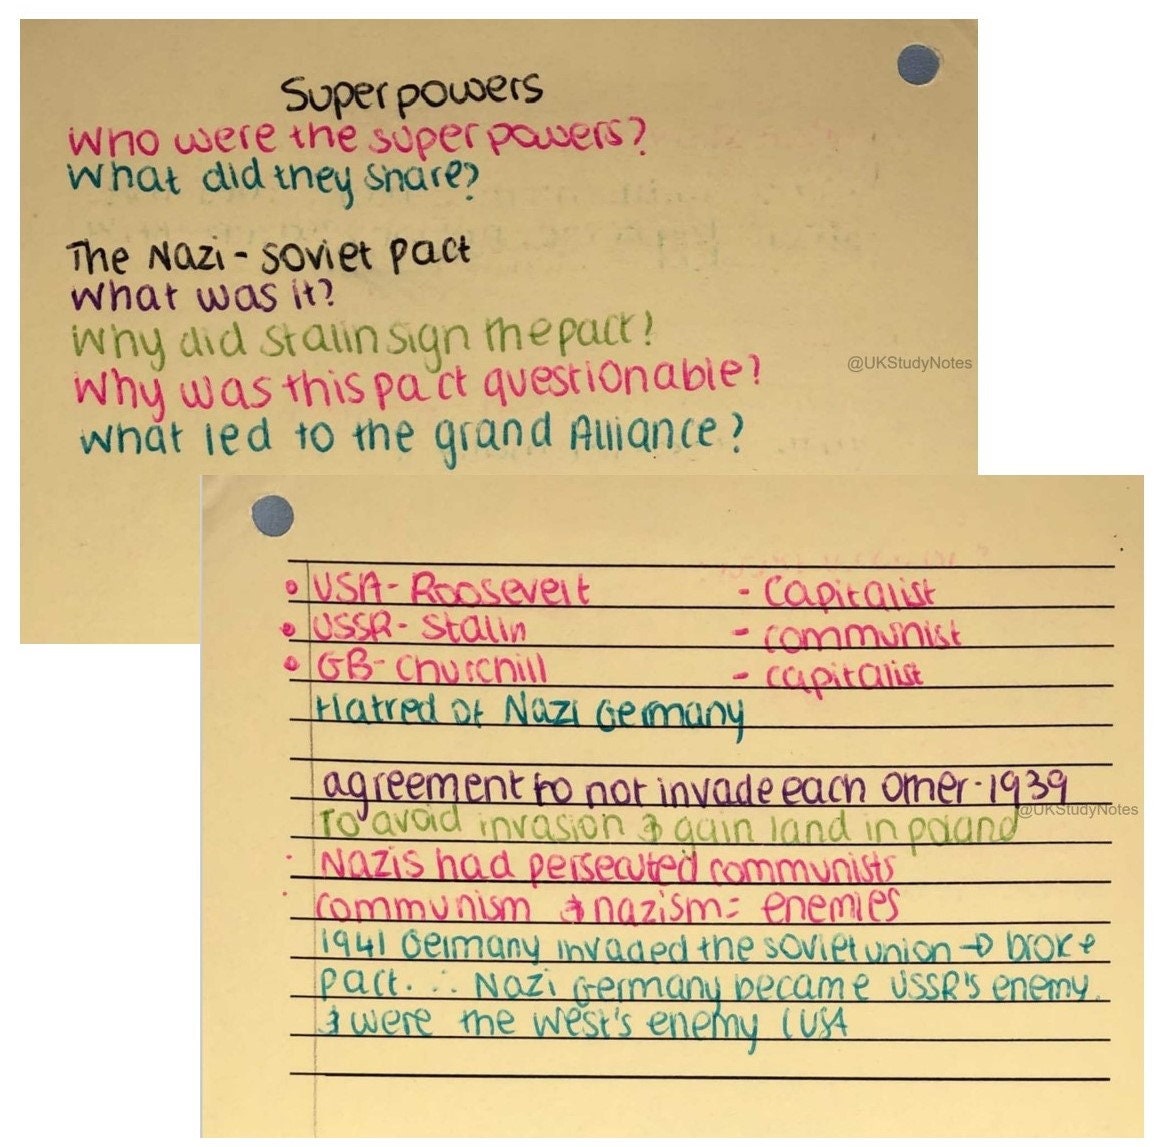 Superpowers
Who were the superpowers?
What did they share?
The Nazi-Soviet Pact
What was it?
Why did Stalin sign the pact?
Why was this pact questionable?
What led to the grand Alliance?
@UKStudyNotes
• USA- Roosevelt - Capitalist
• USSR- Stalin - communist
• GB- Churchill - capitalist
Hatred of Nazi Germany
agreement to not invade each other-1939
@UKStudyNotes
To avoid invasion & gain land in poland
• Nazis had persecuted communists
• communism & nazism= enemies
1941 Germany invaded the soviet union → broke
pact. ∴ Nazi Germany became USSR's enemy
& were the west's enemy (USA